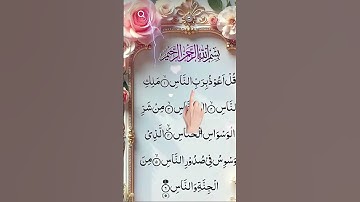 بسم الله الرحمن الرحيم
قُلْ اَعُوْذُ بِرَبِّ النَّاسِ ۙ۱ مَلِكِ
النَّاسِ ۙ۲ النَّاسِ ۙ۳ مِنْ شَرِّ
الْوَسْوَاسِ الْخَنَّاسِ ۙ۴ الَّذِىْ
يُوَسْوِسُ فِىْ صُدُوْرِ النَّاسِ ۙ۵ مِنَ
الْجِنَّةِ وَالنَّاسِ ۶